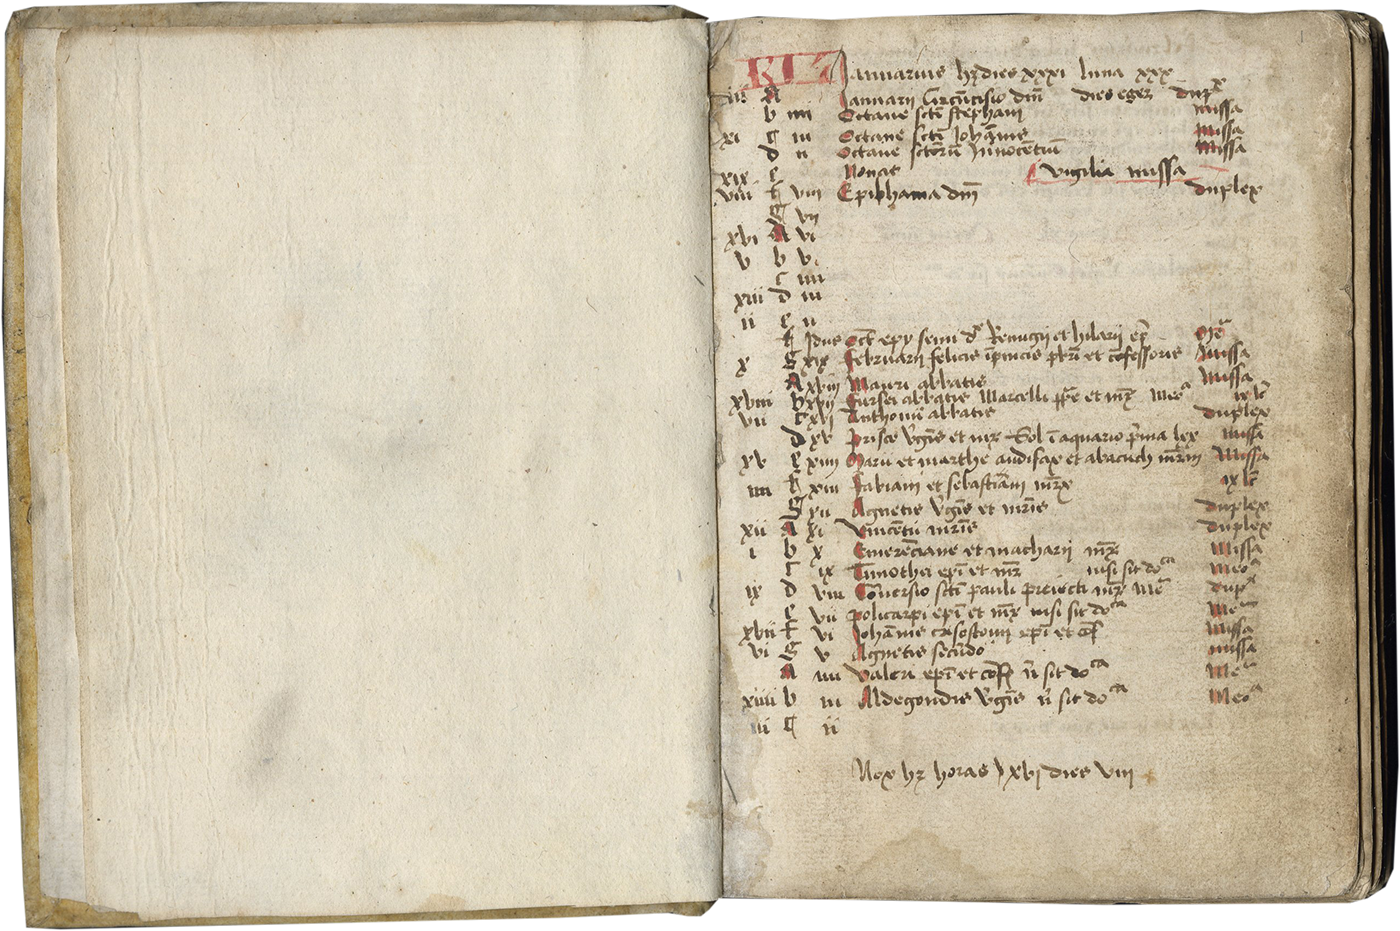 KL Januarius hʒ dies xxxi luna xxx
iii A Januarii Circūcisio dn̄i dies egeʒ dupx
b iiii Octave scti stephani missa
xi c iii Octave scti Johānis Missa
d ii Octave sctorū Innocentiū Missa
xix e Nonas Vigilia missa
viii f viii Epiphania dn̄i duplex
g vii
xvi A vi
v b v
c iiii
xiii d iii
ii e ii
f Idus Oct epy semi d Remigii et hilarii ep̄i
x g xix Februarii felicis ī pincis pbri et cōfessoris Missa
A xviii Mauri abbatis Missa
xviii b xvii Fursei abbatis Marcelli pp̄e et mr̄ Meo ix lc
vii c xvi Anthonii abbatis duplex
d xv Prisce v̄gīs et mr̄ Sol ī aquario p̄ma lex missa
xv e xiiii Marii et marthe audifax et abacuch mr̄m Missa
iiii f xiii Fabiani et sebastiāni mr̄ ix lc
g xii Agnetis v̄gīs et mr̄is duplex
xii A xi Vincētii mr̄is duplex
i b x Emerēciane et macharii mr̄ Missa
c ix Timothei epī et mr̄ nisi sit doca Meo
ix d viii Cōversio scti pauli preiecti mr̄ Me dupx
e vii policarpi epī et mr̄ nisi sit doca Me
xvii f vi Johānis crisostomi epī et cōf Missa
vi g v Agnetis secūdo missa
A iiii Valeri epī et cōf n̄ sit doca Me
xiiii b iii Aldegondis v̄gīs n̄ sit doca Meo
iii c ii
Nox hʒ horas xvi dies viii